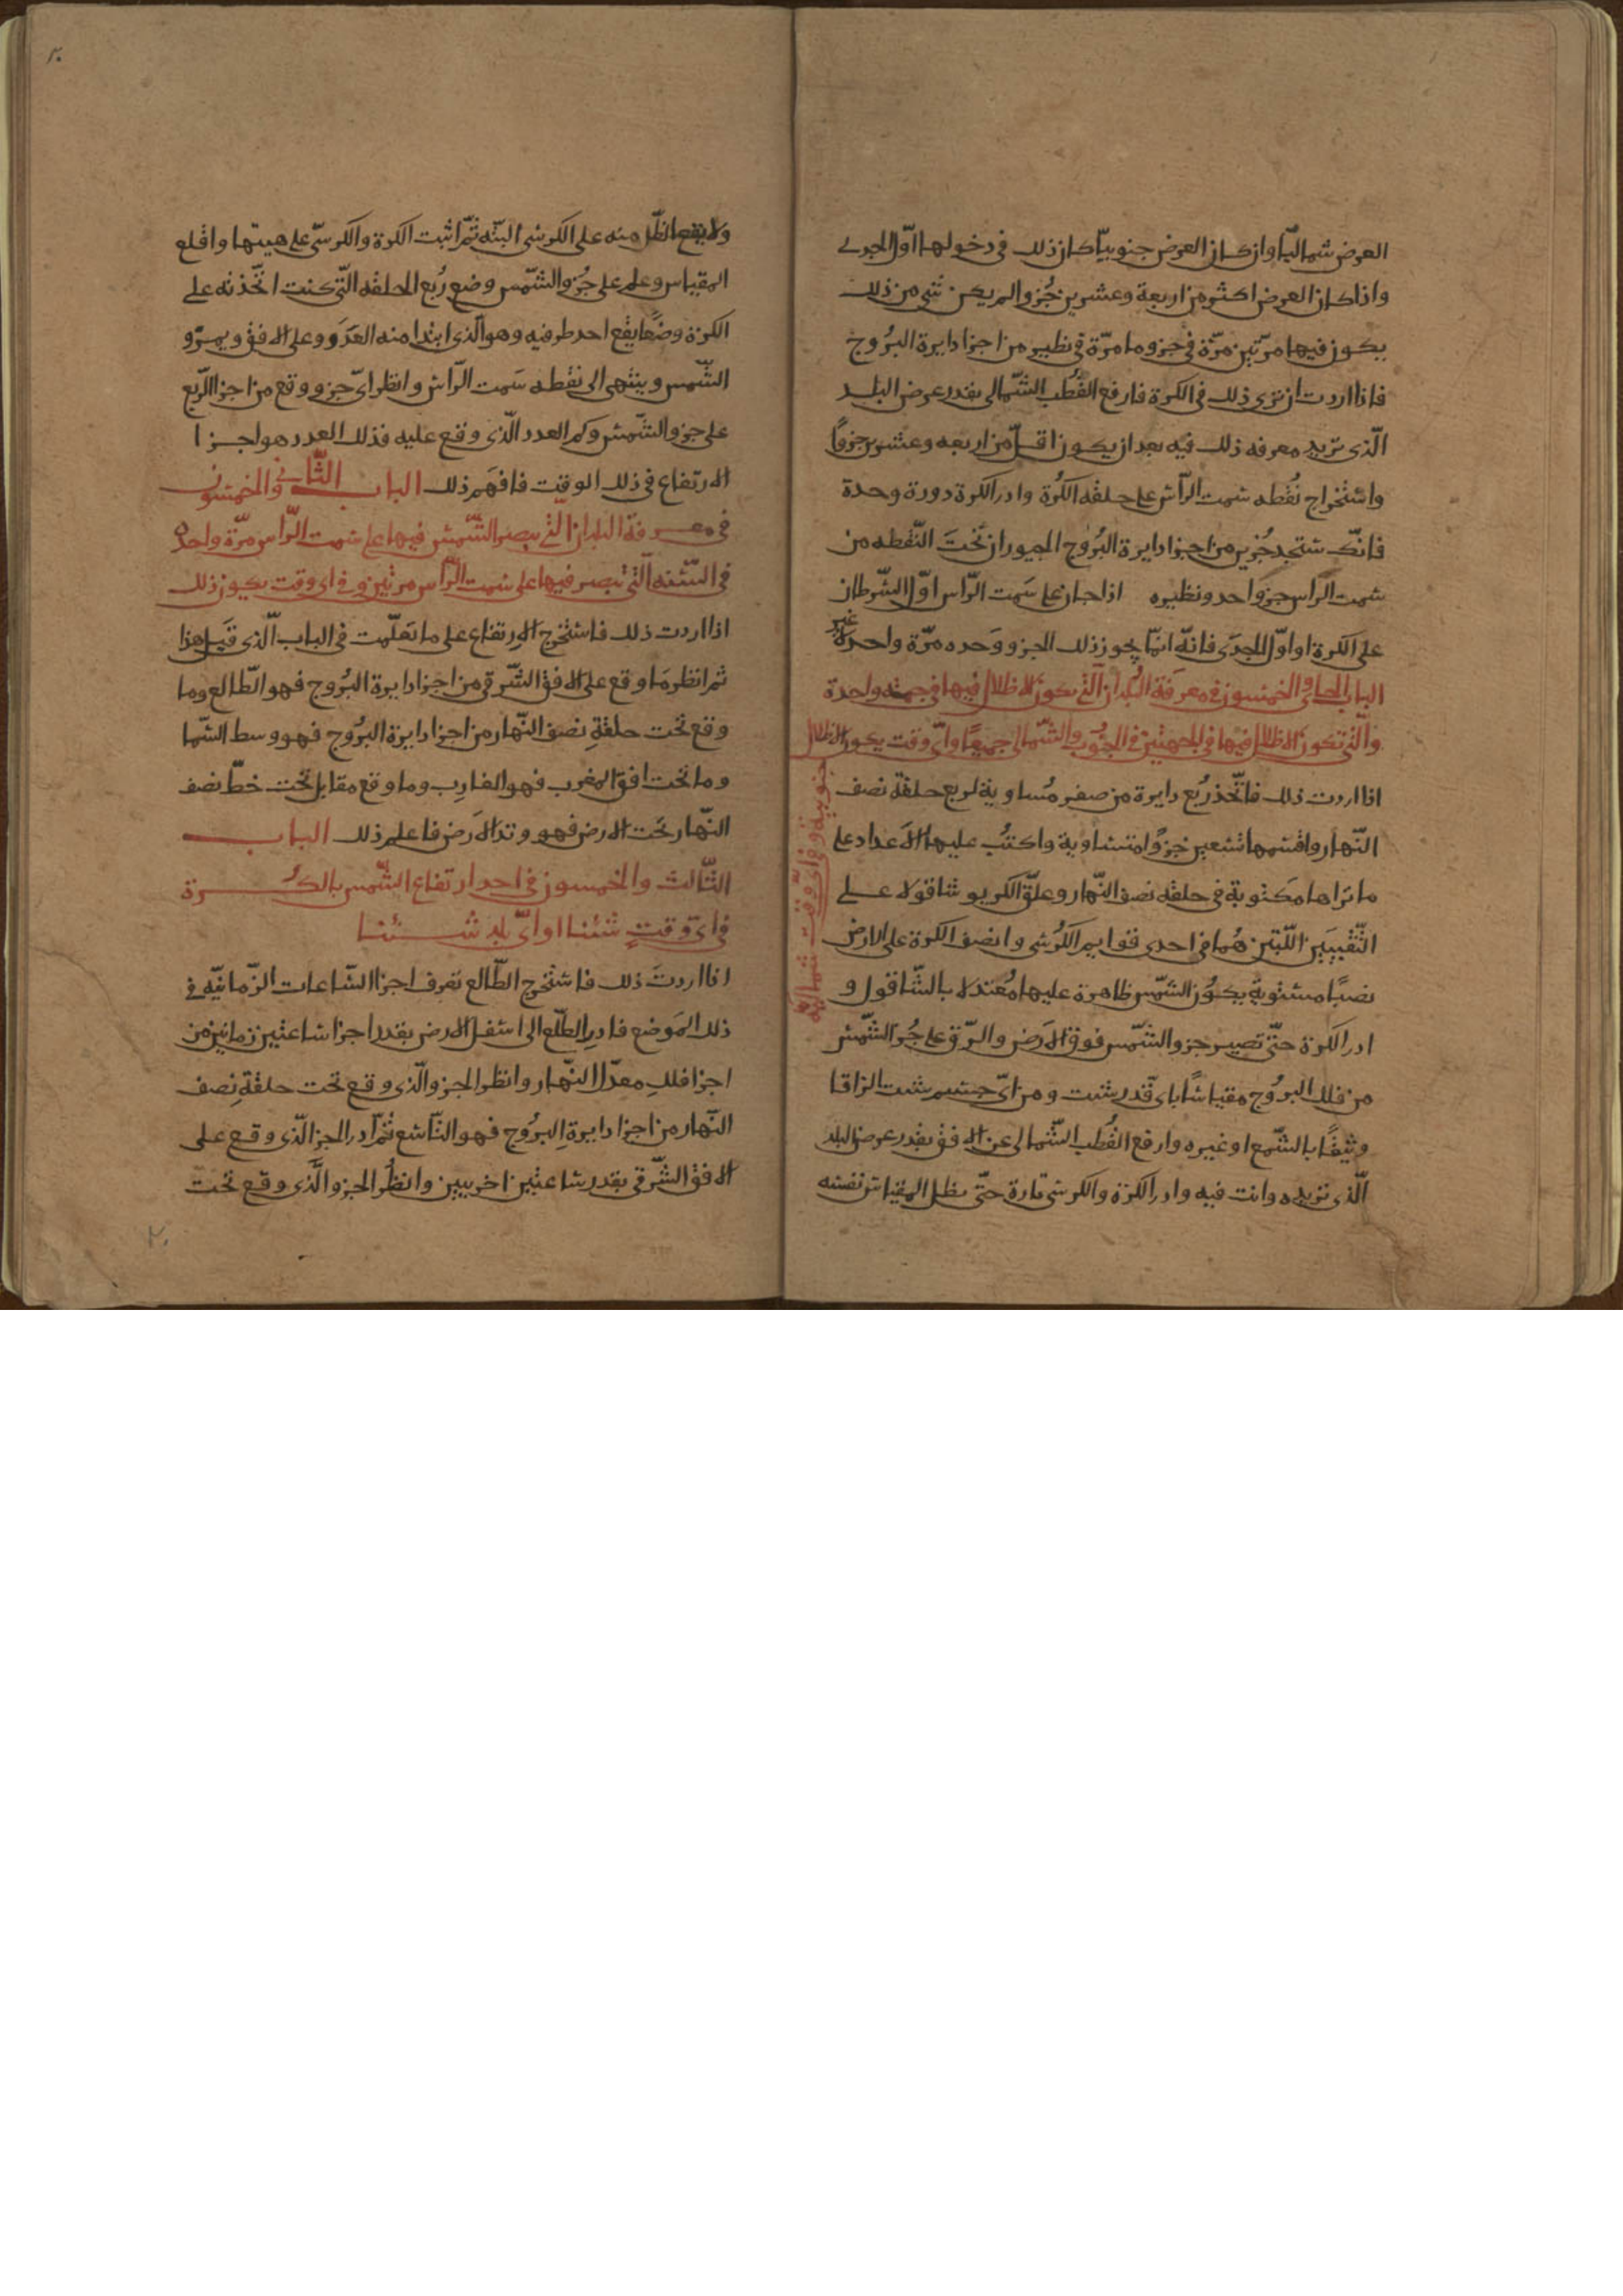 العرض شماليّا وان كان العرض جنوبيّا كان ذلك في دخولها اوّل الجدي
واذا كان العرض اكثر من اربعة وعشرين جُزوا لم يكن شي من ذلك
يكون فيها مرّتين مرّة في جزو ما مرّة في نظير من اجزا دايرة البرُوج
فاذا اردت ان ترى ذلك في الكرة فارفع القُطب الشّمالى بقدر عرض البلد
الّذى تريد معرفه ذلك فيه بعد ان يكون اقلّ من اربعه وعشرين جزوًا
واستخراج نُقطه سمت الرّاس على حلقه الكُرة وادر الكرة دورة وحدة
فانّك ستجد جُزين من اجزا دايرة البُرُوج المجوران تَحْتَ النّقطه من
سمت الرّاس جزوَاحد ونظيره اذا جاز على سَمت الرّاس اوّل السّرطان
على الكرة او اوّل الجدَى فانّه انمّا يجوز ذلك الجزو وَحده مرّة واحدة
غير
الباب الحادى والخمسون في معرفة البُلدان الّتى يكون الاظلال فيها في جهته واحدة
والّتى تكون الاظلال فيها في الجهتين في الجنُوب والشّمالى جميعًا واىّ وقت يكون الاظلال
جنوبية وفي اىّ وقت شماليّة
اذا اردت ذلك فاتّخذ رُبع دايرة من صفر مُساوية لربع حلقة نصف
النّهار واقسمها تسعين جُزوًا متساوية واكتُب عليها الاَعداد على
ما تراها مكتوبة في حلقه نصف النّهار وعلّق الكربو شاقولا على
الثّقبَين اللّتين هُما في احدى قوايم الكُرسى وانصف الكرة على الارض
نصبًا مستوية يكوُن الشّمس ظاهرة عليها مُعتدلا بالشّاقول و
ادر الكرة حتّى تصير جزو الشّمس فوق الاَرض والزق على جُز الشّمس
من فلك البروُج مقياسًا باى قَدر شئت ومن اىّ جسم شئت الزاقا
وثيقًا بالشّمع او غيره وارفع القُطب الشّمالى عن الافق بقدر عرض البلد
الّذى تريده وانت فيه وادر الكرة والكرسى تارة حتّى يظل المقياس نفسه
ولا يقع الظّل منه على الكرسى البتّه ثمّ اثبت الكرة والكرسىّ على هيتها واقلع
المقياس وعلم على جُزو الشّمس وضع رُبع الحلقه الّتى كنت اتّخذته على
الكرة وضعًا يقع احد طرفيه وهو الّذى ابتدا منه العَدَد وعلى الافق ويمرّو
الشّمس وينتهى الى نقطه سَمت الرّاس وانظر اىّ جزو وقع من اجزا الرّبع
على جزو الشّمس وكم العدد الّذى وقع عليه فذلك العدد هو اجزا
الارتفاع في ذلك الوقت فافهَم ذلك الباب الثّانى والخمسون
في معرفة البلدان الّتى يصير الشّمس فيها على سمت الرّاس مرّة واحدة
في السّنه الّتى تصير فيها على سمت الرّاس مرتين وفى اى وقت يكون ذلك
اذا اردت ذلك فاستخرج الاِرتفاع على ما تعَلّمت في الباب الّذى قَبل هذا
ثم انظر مَا وقع على الافق الشّرقى من اجزا دايرة البُرُوج فهو الطّالع وما
وقع تحت حلقةِ نصف النّهار من اجزا دايرة البرُوج فهو وسط السّما
وما تحت افق المغرب فهو الغارِب وما وقع مقابل تحت خطّ نصف
النّهار تحت الارض فهو وتد الاَرض فاعلم ذلك الباب
الثّالث والخمسون في احد ارتفاع الشّمس بالكُرة
في اىّ وقتٍ شئنا او اىّ بلد شئنا
اذا اردتَ ذلك فاستخرج الطّالع تعرف اجزا السّاعات الزّمانيّه في
ذلك المَوضع فادِر الطّلع الى اسفل الارض بقدر اجزا ساعتين زمانيين من
اجزا فلك معدّل النّهار وانظر الجزو الّذى وقع تحت حلقةِ نِصف
النّهار من اجزا دايرةِ البرُوج فهو التّاسع ثمّ ادر الجز الّذى وقع على
الافق الشّرقى بقدر ساعتين اخريين وانظُر الجزو الَّذى وقع تحت
٢٠
٢٠